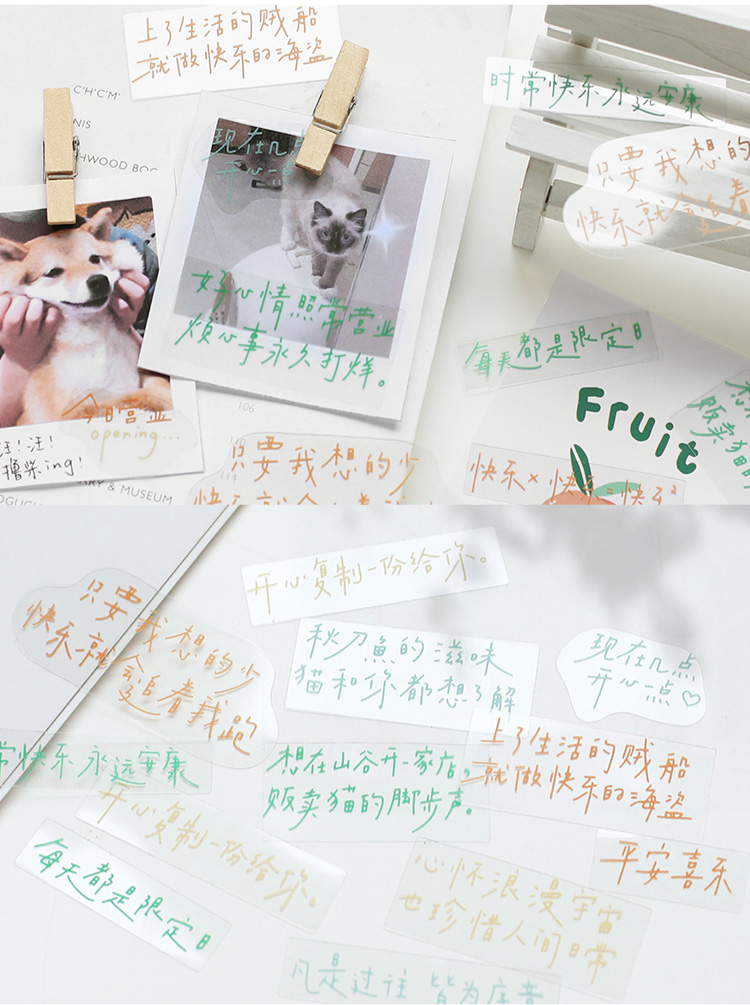 上了生活的贼船
就做快乐的海盗
C'H'C'M'
NIS
HWOOD BOO
时常快乐 永远安康
现在几点
开心一点
只要我想的
快乐就会追着
好心情照常营业
烦心事永久打烊。
每天都是限定日
今日营业
opening...
106
110
汪!汪!
撸柴ing!
RY & MUSEUM
Fruit
想
贩卖猫的
只要我想的少
快乐就会追着我
快乐×快乐=快乐²
开心复制一份给你。
只要我想的少
快乐就会追着我跑
秋刀魚的滋味
猫和你都想了解
现在几点
开心一点♡
上了生活的贼船
就做快乐的海盗
常快乐 永远安康
想在山谷开一家店,
贩卖猫的脚步声。
开心复制一份给你。
平安喜乐
每天都是限定日
心怀浪漫宇宙
也珍惜人间日常
凡是过往 皆为序章